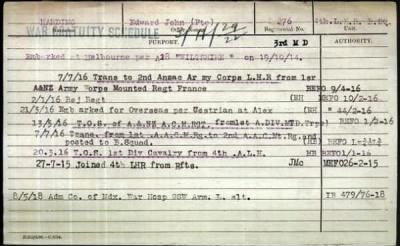 HARDING Edward John (Pte) 276 4th.L.H.R.B.Sq.
WAR GRATUITY SCHEDULE
PURPORT.
3rd M D
Embarked Melbourne per A18 "WILTSHIRE" on 19/10/14.
7/7/16 Trans to 2nd Anzac Army Corps L.H.R from 1sr
A&NZ Army Corps Mounted Regt France BEFO 9/4-16
2/1/16 Rej Regt (RH MEFO 10/2-16
21/3/16 Embarked for Overseas per Cestrian at Alex (RH " 44/2-16
13/3/16 T.O.S. of A&NZ A.C.M.RGT. from 1st A.DIV.MTD.Trps) BEFO 1/2-16
7/7/16 Trans. from 1st A.A.C.M.Rg. to 2nd A.A.C.Mt.Rg. and
posted to B.Squad. (HB BEFO
20.3.16 T.O.S. 1st Div Cavalry from 4th .A.L.H. HB BEFO1/1-16
27-7-15 Joined 4th LHR from Rfts. JMc MEF026-2-15
8/5/18 Adm Co. of Ndx. War Hosp GSW Arm. L. slt. IB 479/76-18